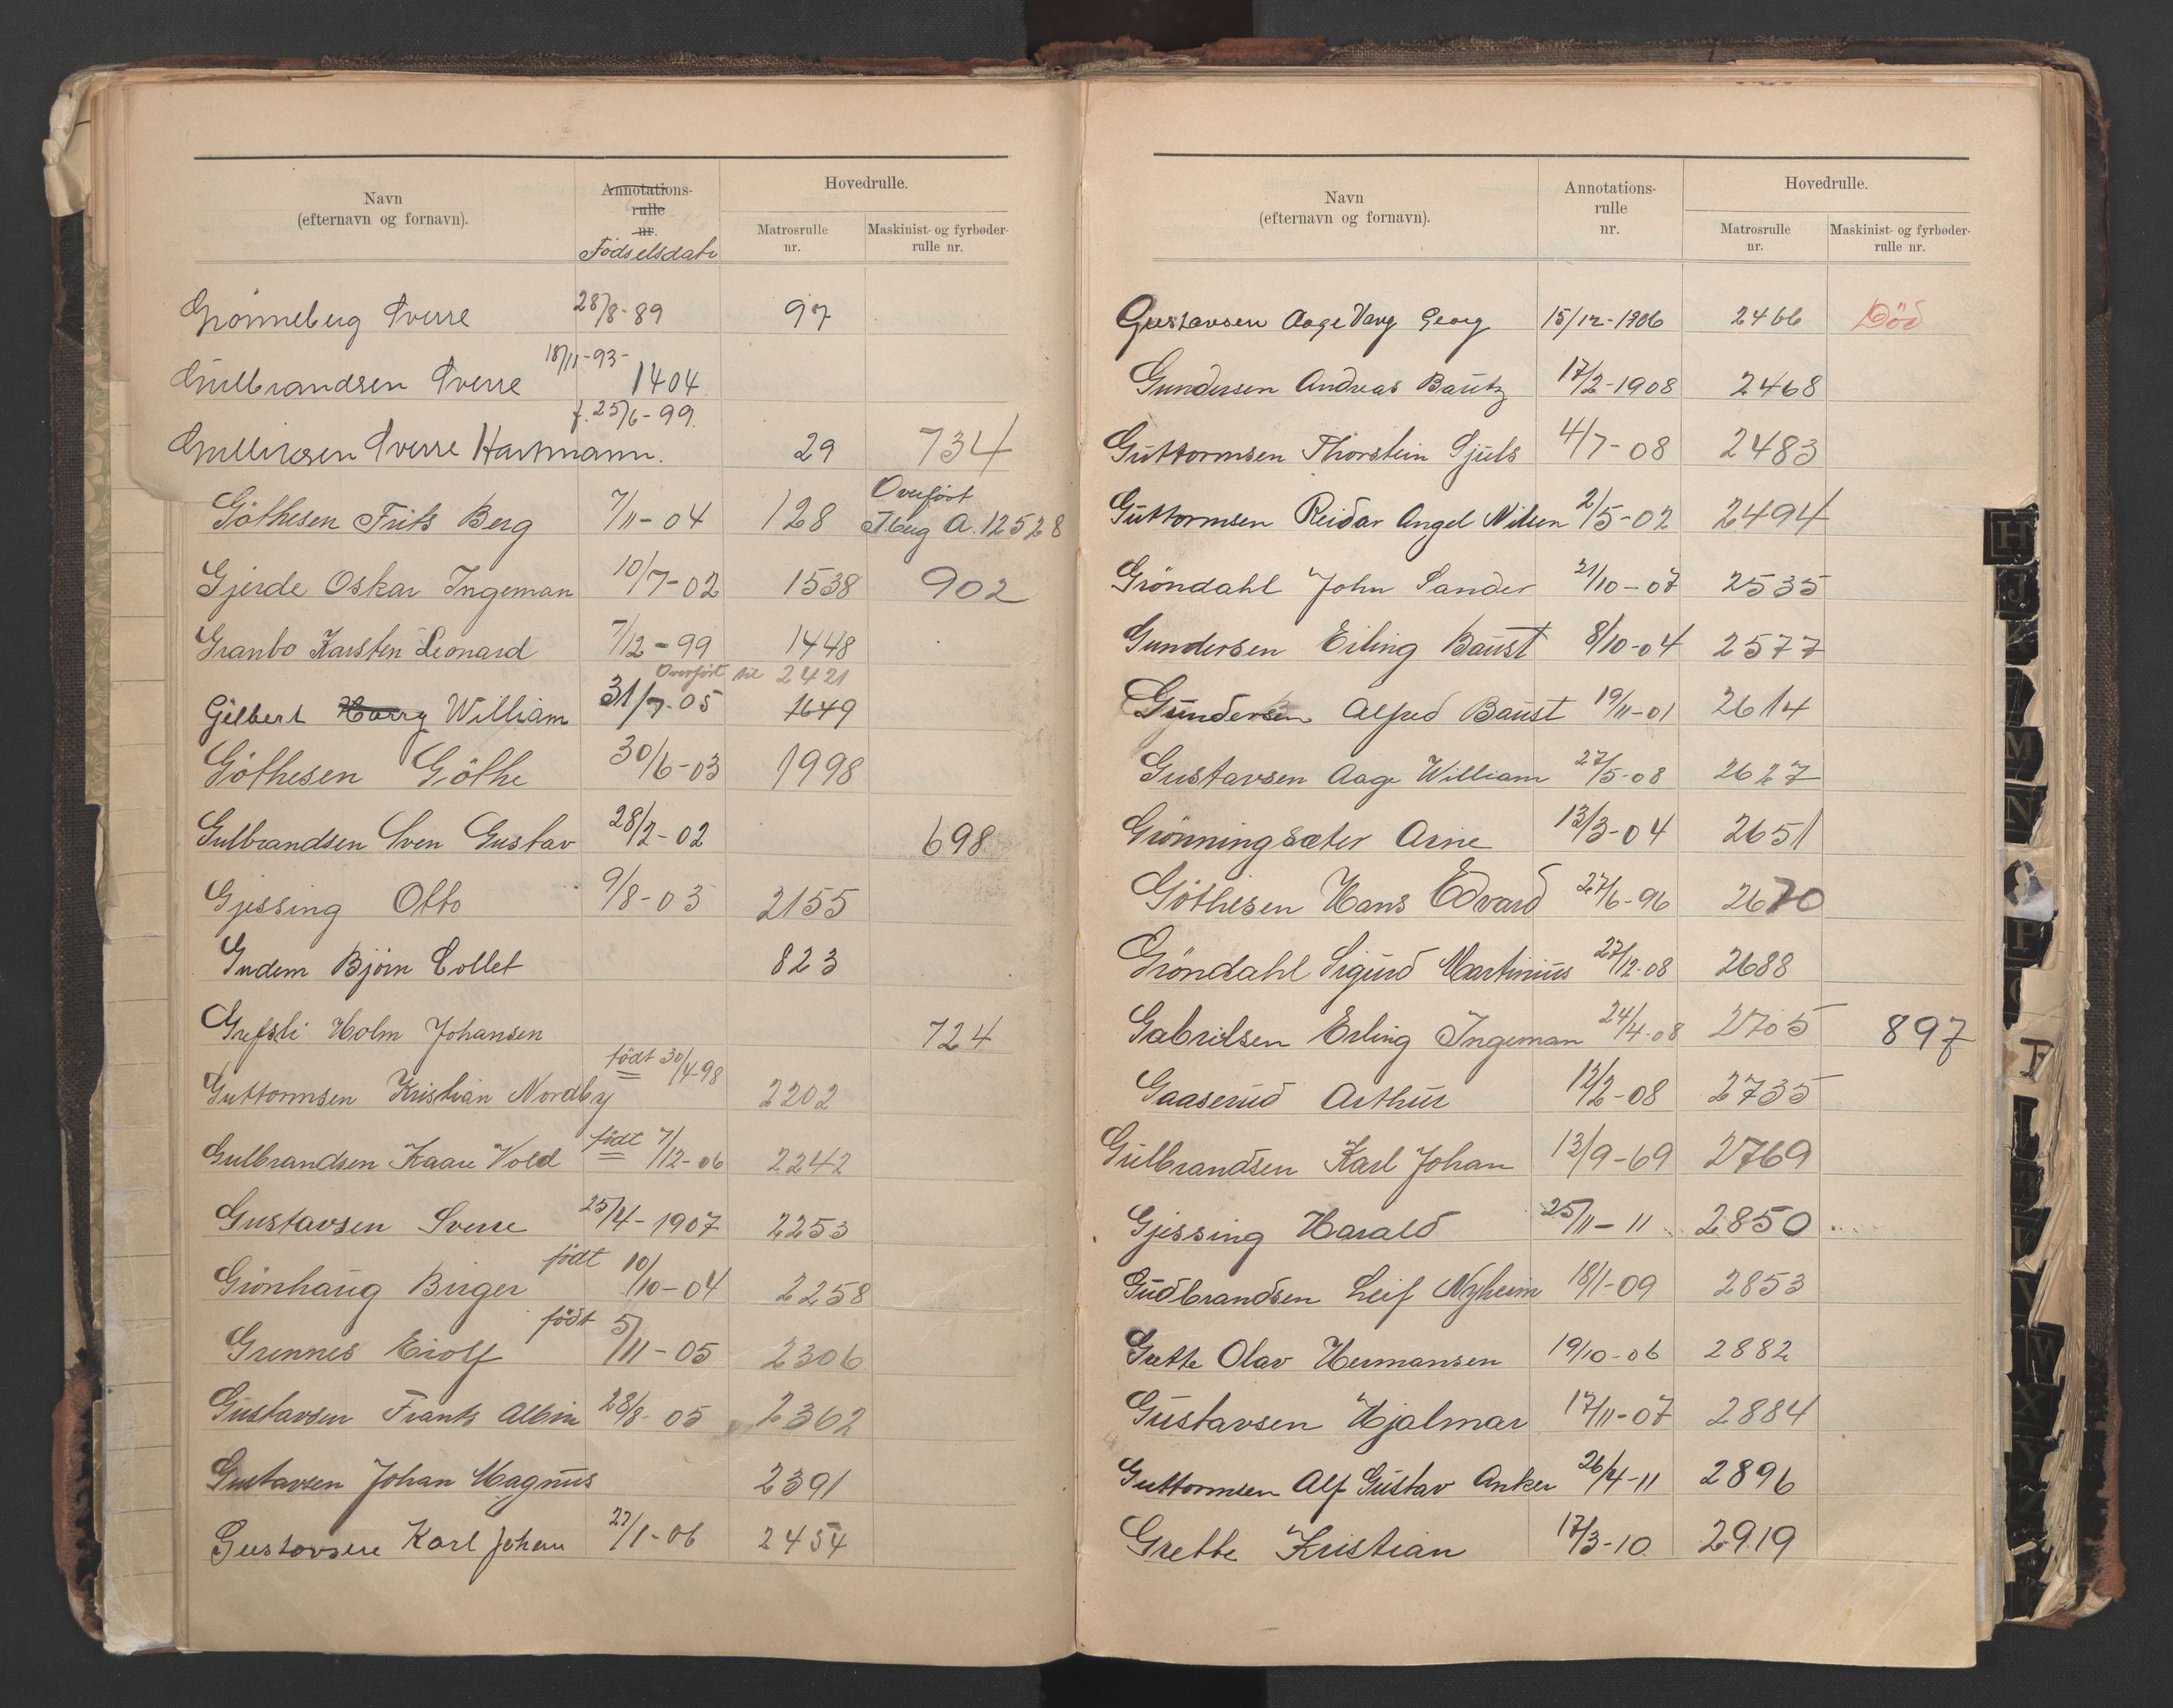 Navn
(efternavn og fornavn).
Annotations-
rulle
nr.
Födselsdato
Hovedrulle.
Matrosrulle
nr.
Maskinist- og fyrbøder-
rulle nr.
Grönneberg Sverre 28/8-89 97
18/11-93-
Gulbrandsen Sverre 1404
f. 25/6-99.
Sverre Hartmann. 29 734
Overfört
Göthesen Frits Berg 7/11-04 128 A. 12528
Gjerde Oskar Ingeman 10/7-02 1538 902
Granbo Karsten Leonard 7/12-99 1448
Overfört til 2421
Gilbert Harry William 31/7-05 1649
Göthesen Göthe 30/6-03 1998
Gulbrandsen Sven Gustav 28/2-02 698
Gjessing Otto 9/8-03 2155
Gudem Björn Collet 823
Grefsli Holm Johansen 724
födt 30/4-98
Guttormsen Kristian Nordby 2202
Gulbrandsen Kaare Vold födt 7/12-06 2242
Gustavsen Sverre 25/4-1907 2253
Grönhaug Birger födt 10/10-04 2258
Grennes Eiolf födt 5/11-05 2306
Gustavsen Frants Albin 28/8-05 2362
Gustavsen Johan Magnus 2391
Gustavsen Karl Johan 27/1-06 2454
Navn
(efternavn og fornavn).
Annotations-
rulle
nr.
Hovedrulle.
Matrosrulle
nr.
Maskinist- og fyrbøder-
rulle nr.
Gustavsen Aage Vang Georg 15/12-1906 2466 Död
Gundersen Andreas Bautz 17/2-1908 2468
Guttormsen Thorstein Gjuls 4/7-08 2483
Guttormsen Reidar Angel Nilsen 2/5-02 2494
Gröndahl John Sander 21/10-07 2535
Gundersen Erling Baust 8/10-04 2577
Gundersen Alfred Baust 19/11-01 2614
Gustavsen Aage William 27/5-08 2627
Grönningsæter Arne 13/3-04 2651
Göthesen Hans Edvard 27/6-96 2670
Gröndahl Sigurd Martinius 27/12-08 2688
Gabrielsen Erling Ingeman 24/4-08 2705 897
Gaaserud Arthur 12/2-08 2735
Gulbrandsen Karl Johan 13/9-69 2769
Gjessing Harald 25/11-11 2850
Gudbrandsen Leif Nyheim 18/1-09 2853
Grette Olav Hermansen 19/10-06 2882
Gustavsen Hjalmar 17/11-07 2884
Guttormsen Alf Gustav Anker 26/4-11 2896
Grette Kristian 17/3-10 2919
H
J
M
N
O
P
T
W
X
Y
Z